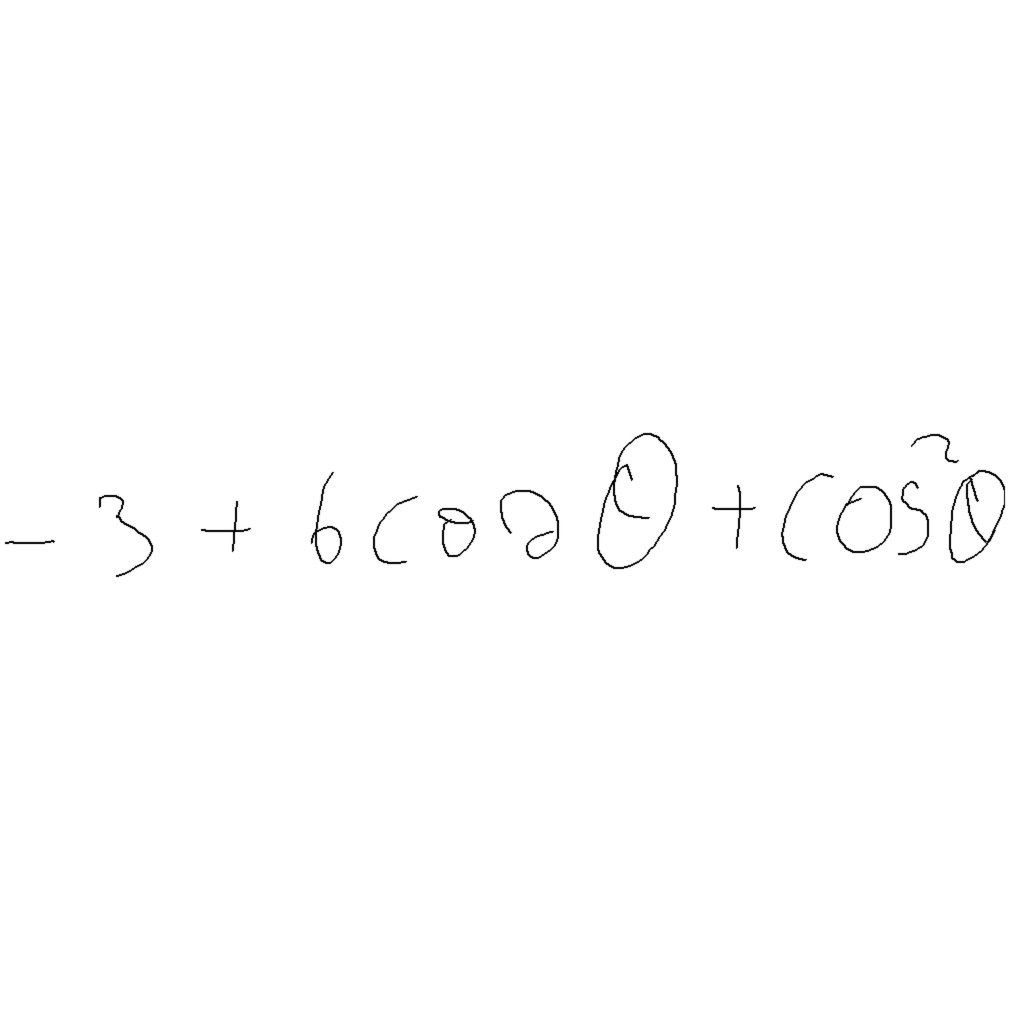 -3 + 6cosθ + cos²θ